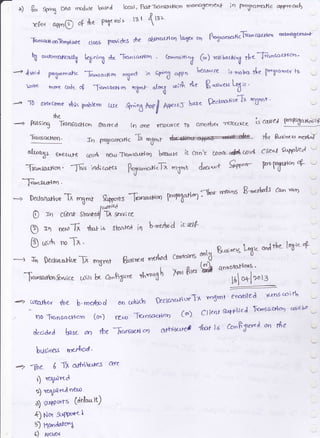 a) for Spring DAO module based local, flat Transaction management in programatic approach,
refer appn① of the page no's 131 & 132.
TransactionTemplate class provides the abstraction layer on Programatic Transaction management
by automatically begining the Transaction, commiting (or) rollbacking the Transaction.
→ Avoid programatic Transaction mgmt in Spring appn because it makes the programmer to
write more code of Transaction mgmt along with the Business Logic.
→ To overcome this problem use Spring AOP / AspectJ base Declarative Tx mgmt.
→ Passing Transaction started in one resource to another resource is called propagation of
Transaction. In programatic Tx mgmt the Business method
always execute with new Transaction because it can't with client supplied
Transaction. This indicates ProgramaticTx mgmt doesnot Support propagation of
Transaction.
→ Declarative Tx mgmt Supports Transaction propagation. That means B-methods can run
① In client started Tx service
② In new Tx that is started in b-method itself
③ with no Tx.
→ In Declarative Tx mgmt Business method contains only Business Logic and the logic of
Transaction Service will be Configure through Xml files (or) annotations.
16/04/2013
→ Weather the b-method on which DeclarativeTx mgmt enabled runs with
no Transaction (or) new Transaction (or) Client supplied Transaction will be
decided base on the Transaction attribute that is Configured on the
business method.
→ The 6 Tx attributes are
1) required
2) required new
3) supports (default)
4) Not Supported
5) Mandatory
6) Never